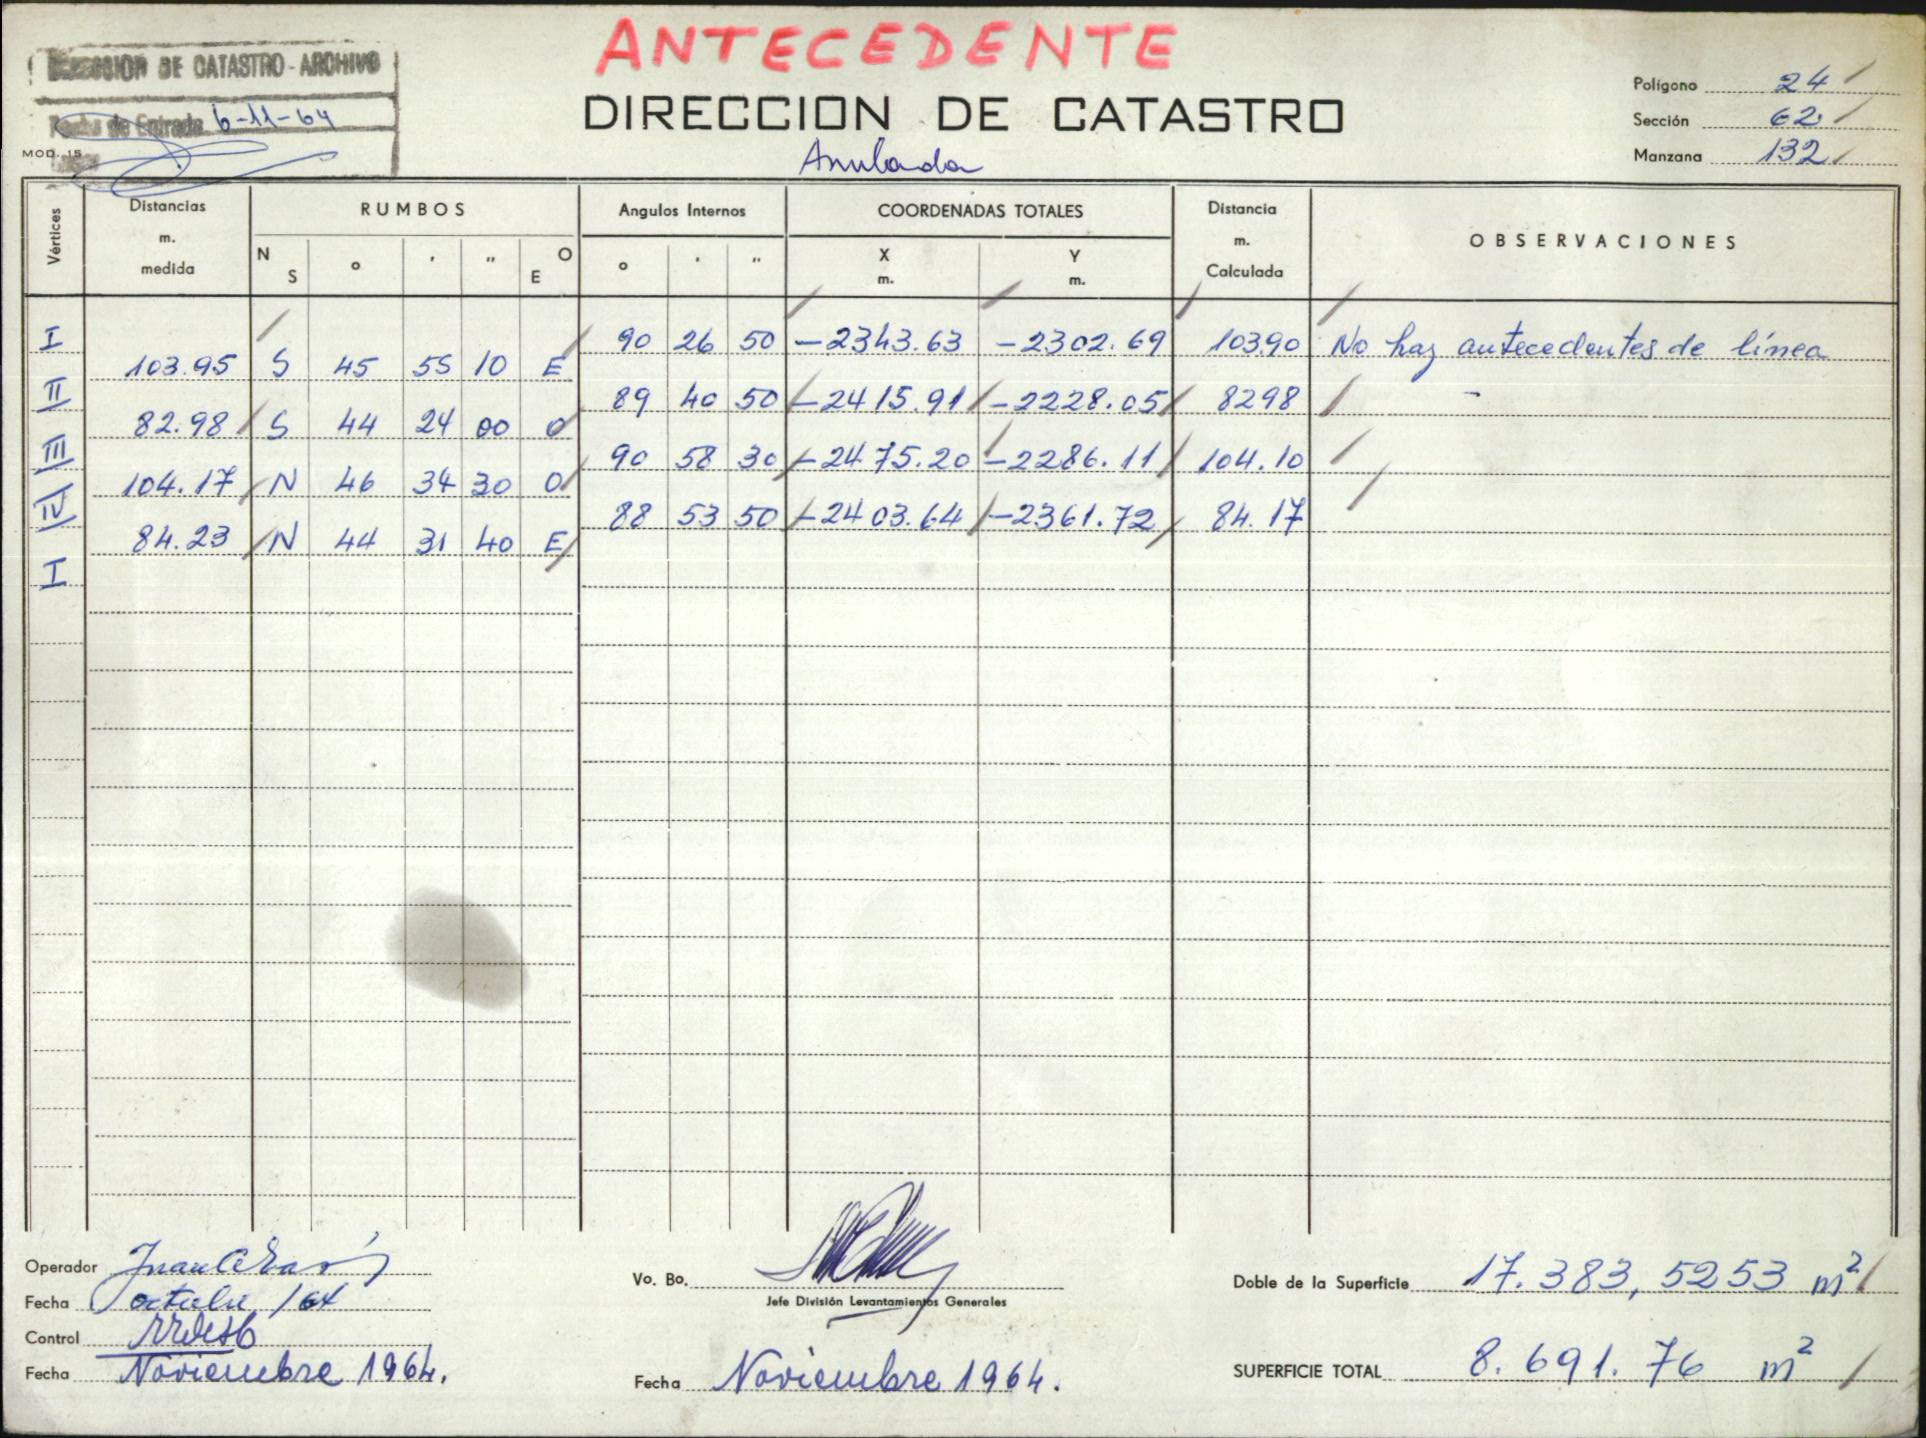 ANTECEDENTE
DIRECCION DE CATASTRO - ARCHIVO
Fecha de Entrada 6-11-64
MOD. 15
DIRECCION DE CATASTRO
Anulada
Polígono 24
Sección 62
Manzana 132
Vértices
Distancias m. medida
RUMBOS
N S ° ' " O E
Angulos Internos
° ' "
COORDENADAS TOTALES
X m. Y m.
Distancia m. Calculada
OBSERVACIONES
I 90 26 50 -2343.63 -2302.69 103.90 No hay antecedentes de línea
103.95 S 45 55 10 E
II 89 40 50 -2415.91 -2228.05 8298 -
82.98 S 44 24 00 O
III 90 58 30 -2475.20 -2286.11 104.10
104.17 N 46 34 30 O
IV 88 53 50 -2403.64 -2361.72 84.17
84.23 N 44 31 40 E
I
Operador Juan
Fecha octubre /64
Control
Fecha Noviembre 1964.
Vo. Bo.
Jefe División Levantamientos Generales
Fecha Noviembre 1964.
Doble de la Superficie 17.383,5253 m²
SUPERFICIE TOTAL 8.691.76 m²